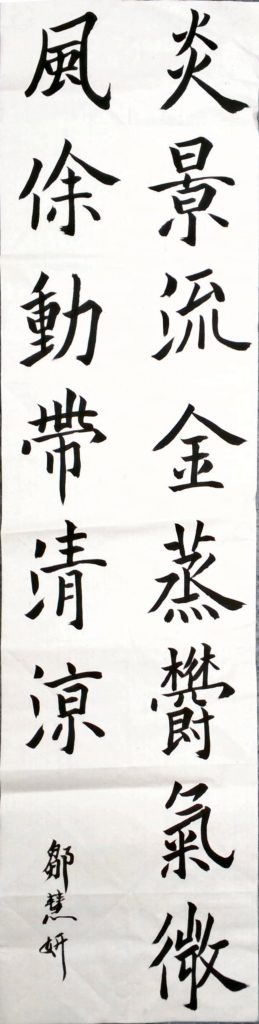 炎景流金蒸欝氣微
風徐動帶清涼
鄒慧妍